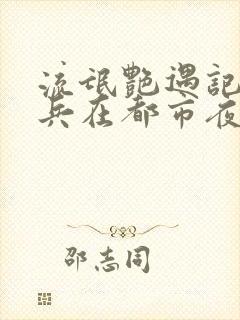 流氓艷遇記
兵在都市夜
邵志同